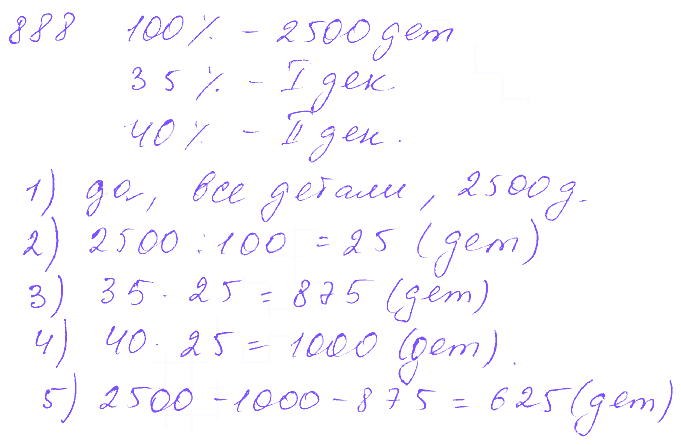 888 100% - 2500 дет
35% - I дек.
40% - II дек.
1) да, все детали, 2500 д.
2) 2500 : 100 = 25 (дет)
3) 35 · 25 = 875 (дет)
4) 40 · 25 = 1000 (дет).
5) 2500 - 1000 - 875 = 625 (дет)